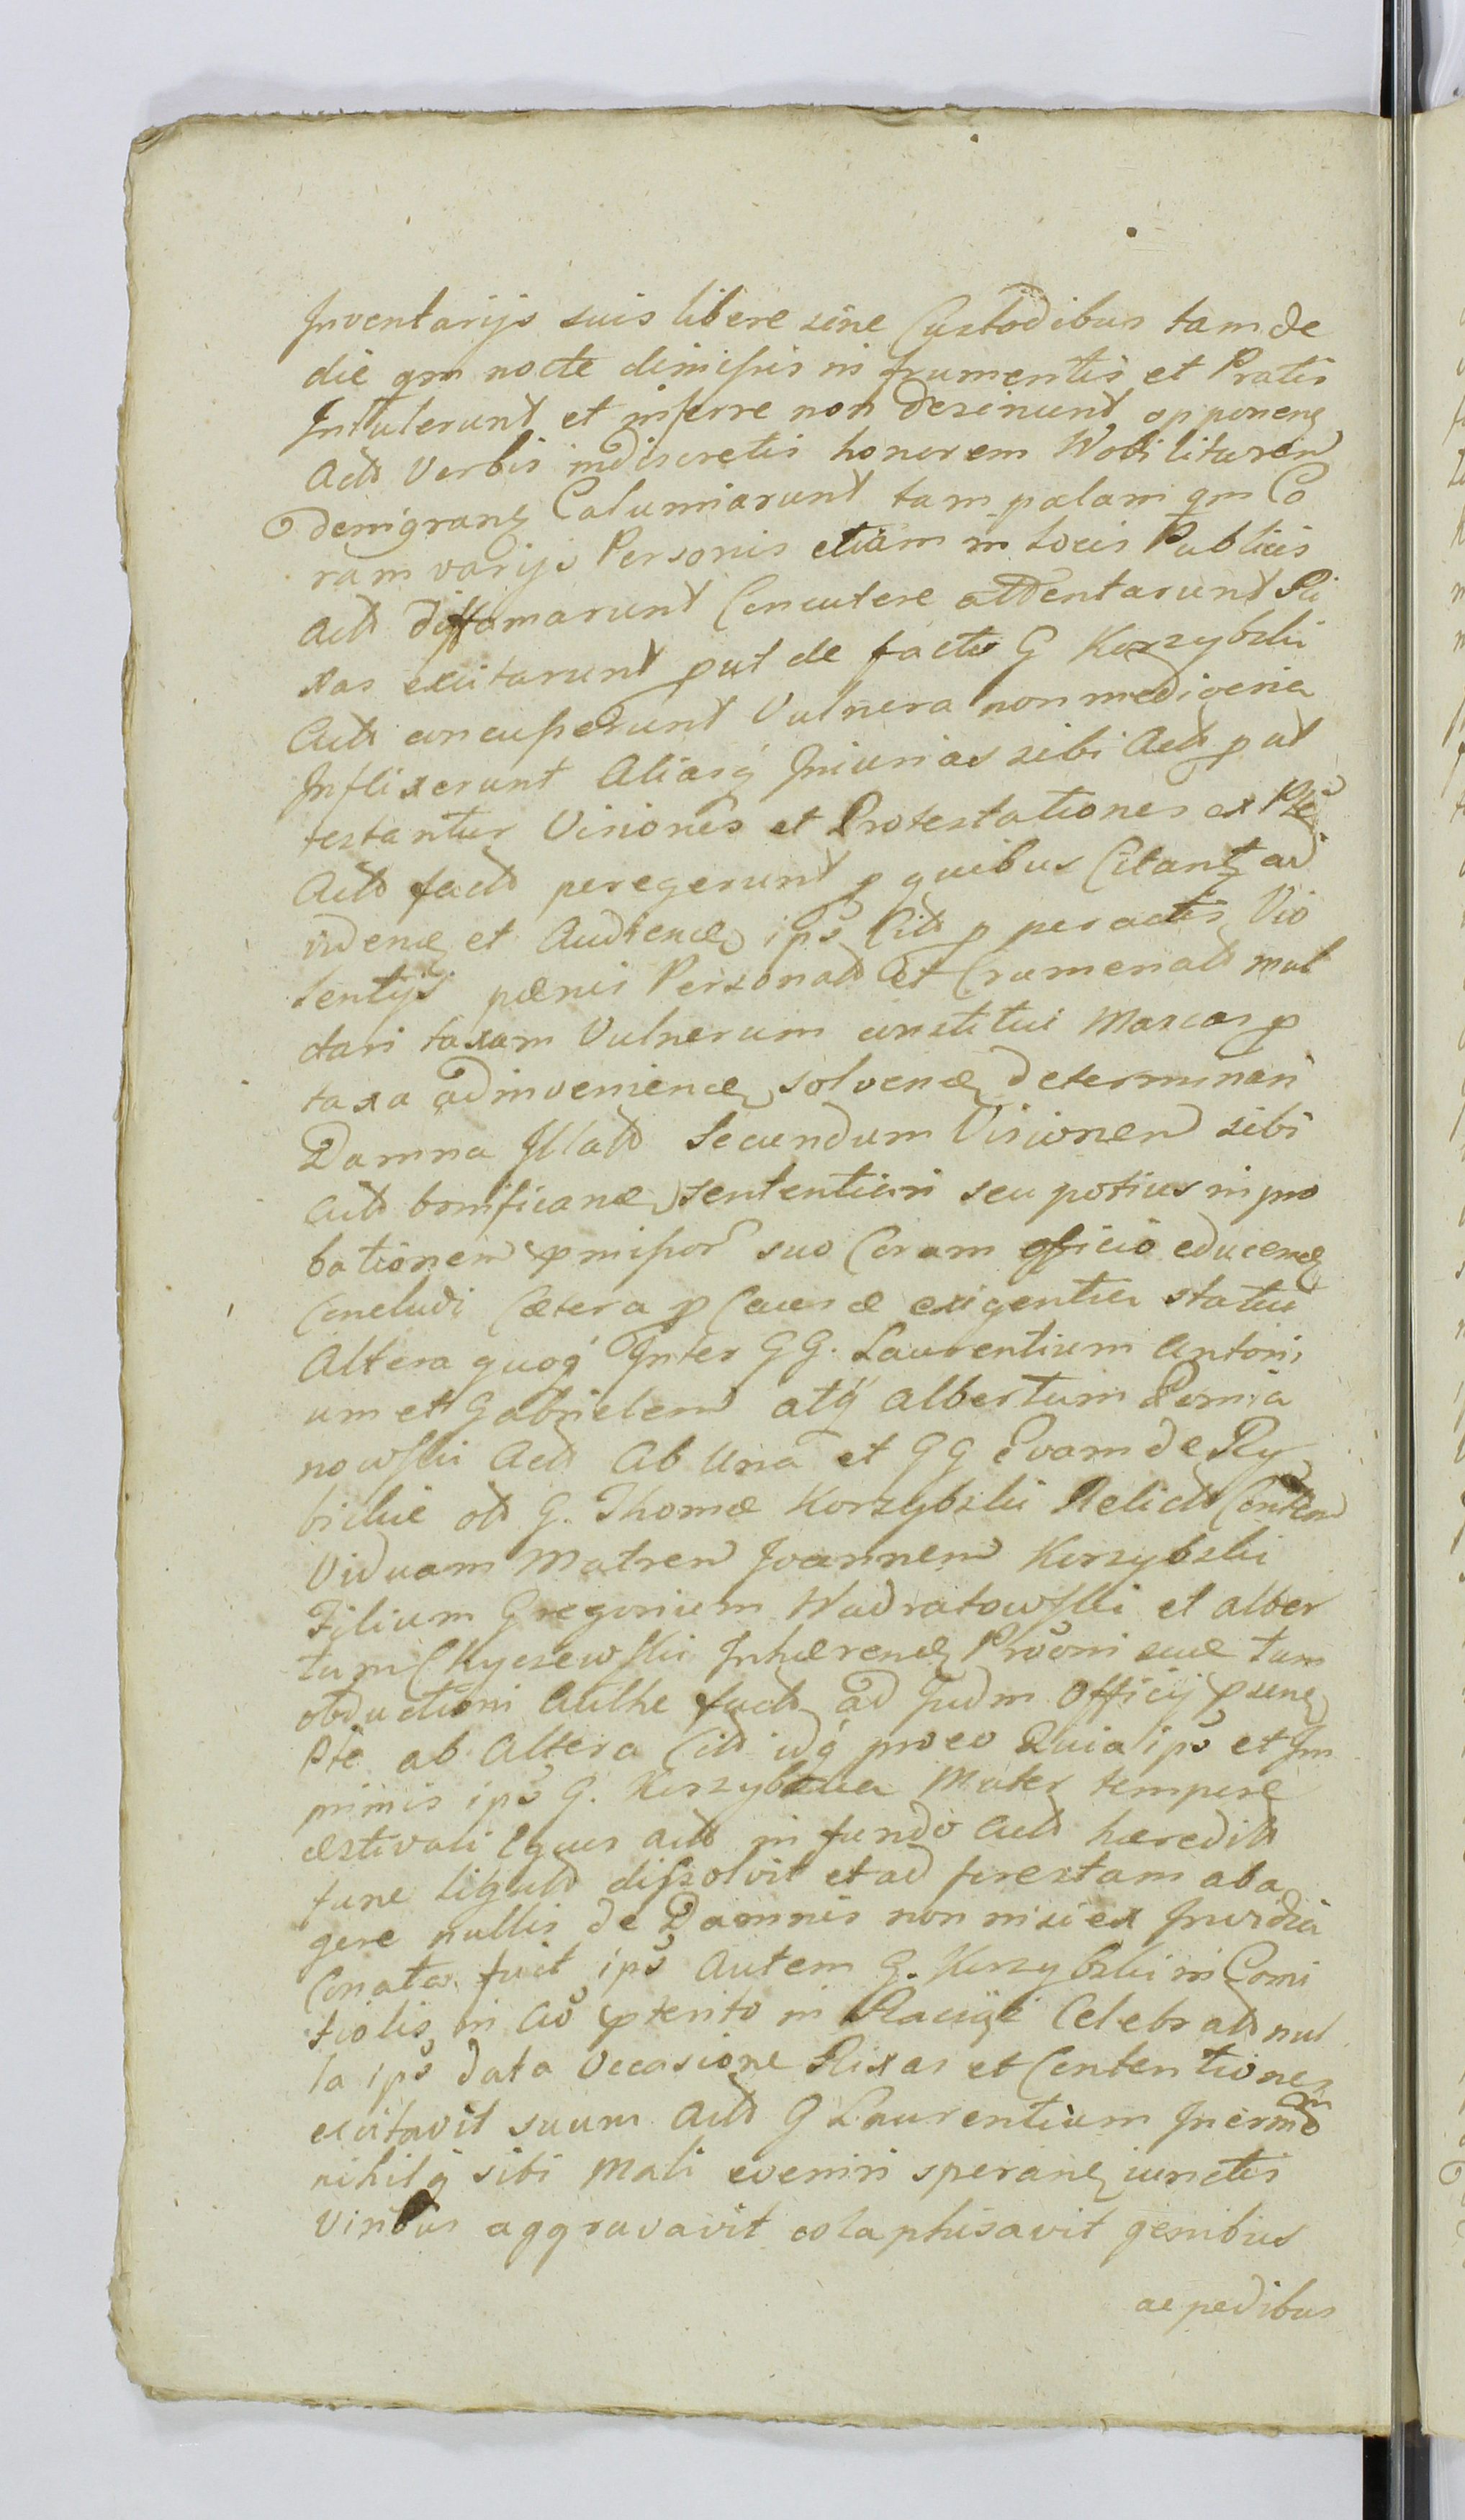 Inventarijs suis libere sine Custodibus tam de
die qm nocte dimissis in frumentis et Pratis
Intulerunt et inferre non desinunt opponen
Actt Verbis indiscretis honorem Nobilitaren
denigran Calumniarunt tam palam qm Co
ram varijs Personis etiam in locis Publicis
Actt diffamarunt Concutere attentarunt Ri
xas excitarunt put de facto G Korzybski
Actt concusserunt Vulnera non mediocria
Inflixerunt Aliasq Iniurias sibi Actt put
testantur Visiones et Protestationes ex Pte
Actt factt peregerunt p quibus Citant ad
viden et Audien ips Citt p peractis Vio
lentijs pænis Personatt et Crumenatt mul
ctari taxam Vulnerum constitui Marcas p
taxa adinvenien solven determinari
Damna Illatt Secundum Visionem sibi
Actt bonifican sententiari seu potius in pro
bationem pmissor suo Coram officio educen
Concludi Cætera p Causæ exigentia statui
Altera quoq Inter GG. Laurentium Antoni
um et Gabrielem atq Albertum Pomia
nowski Actt Ab Una et GG Evam de Ry
bickie ott G. Thomæ Korzybski Relictt Conten
Viduam Matrem Joannem Korzybski
Filium Gregorium Wadratowski et Alber
tum Chyczewski Inhæren Prooni suæ tum
obductioni Authe factt ad Judm Officij psens
Pte ab Altera Citt idq pro eo Quia ips et Im
primis ips G. Korzybska Mater tempore
æstivali Equos Actt in fundo Actt hæreditt
fune ligatt dissolvit et ad forestam aba
gere nullis de Damnis non nisi ex Invidia
Conata fuit ips Autem G. Korzybski in Comi
tiolis in Ao pterito in Raciąż Celebratt nul
la ips data Occasione Rixas et Contentiones
excitavit suum Actt G Laurentium Inermem
nihilq sibi Mali eveniri speran iunctis
Viribus aggravavit colaphisavit genibus
ac pedibus